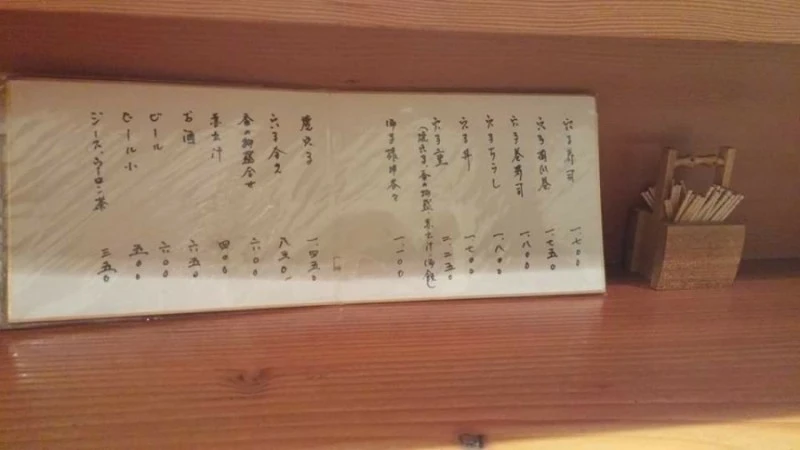 穴子寿司 一、七〇〇
穴子胡瓜巻 一、七五〇
穴子巻寿司 一、八〇〇
穴子ちらし 一、八〇〇
穴子丼 一、七〇〇
穴子重 二、二五〇
一、一〇〇
穴子 一、四五〇
八五〇
香の物盛合せ 六〇〇
赤出汁 四〇〇
お酒 六五〇
ビール 六〇〇
ビール小 五〇〇
ジュース、ウーロン茶 三五〇